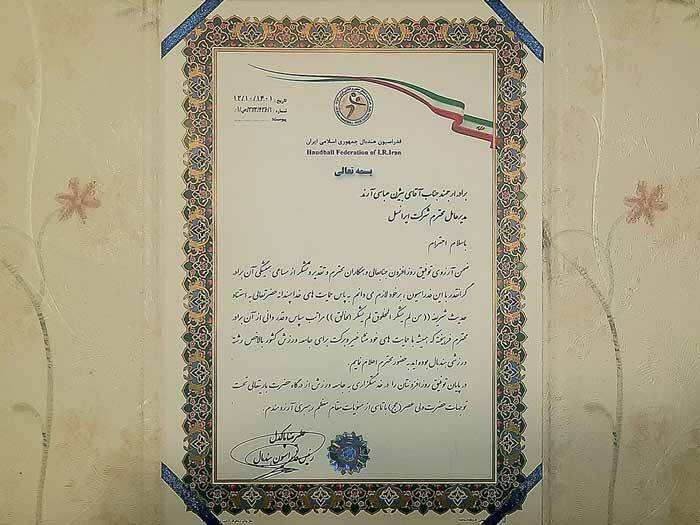 تاریخ: ۱۲/۱۰/۱۴۰۱
شماره:
پیوست:
فدراسیون هندبال جمهوری اسلامی ایران
Handball Federation of I.R.Iran
بسمه تعالی
برادر ارجمند جناب آقای بیژن عباسی آرند
مدیرعامل محترم شرکت ایرانسل
باسلام احترام
ضمن آرزوی توفیق روزافزون جنابعالی و همکاران محترم و تقدیر و تشکر از مساعی همیشگی آن برادر
گرانقدر با این فدراسیون ، برخود لازم می دانم به پاس حمایت های خداپسندانه حضرتعالی به استناد
حدیث شریفه (( من لم یشکر المخلوق لم یشکر الخالق )) مراتب سپاس و قدردانی از آن برادر
محترم فرهیخته که همیشه با حمایت های خود منشا خیر و برکت برای جامعه ورزش کشور بالاخص رشته
ورزشی هندبال بوده اید به حضور محترم اعلام نمایم.
در پایان توفیق روزافزونتان را در خدمتگزاری به جامعه ورزش از درگاه حضرت باریتعالی تحت
توجهات حضرت ولی عصر (عج) با تاسی از منویات مقام معظم رهبری آرزومندم.
علیرضا پاکدل
رئیس فدراسیون هندبال